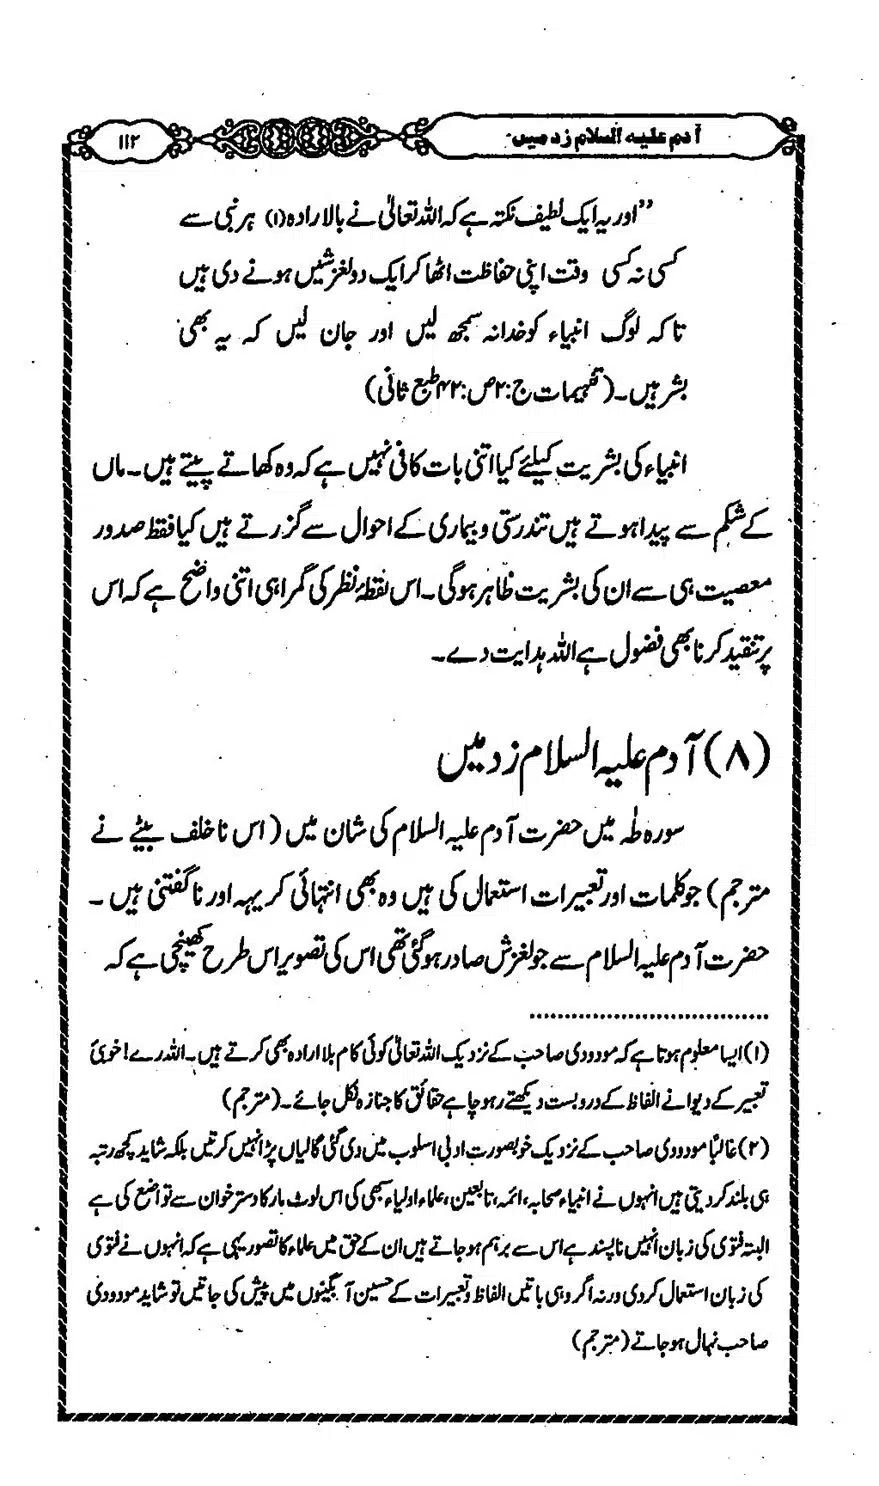 آدم علیہ السلام زد میں
۱۱۲
”اور یہ ایک لطیف نکتہ ہے کہ اللہ تعالیٰ نے بالارادہ(۱) ہر نبی سے
کسی نہ کسی وقت اپنی حفاظت اٹھا کر ایک دو لغزشیں ہونے دی ہیں
تاکہ لوگ انبیاء کو خدا نہ سمجھ لیں اور جان لیں کہ یہ بھی
بشر ہیں۔(تفہیمات ج:۲ص:۴۲طبع ثانی)
انبیاء کی بشریت کیلئے کیا اتنی بات کافی نہیں ہے کہ وہ کھاتے پیتے ہیں۔ماں
کے شکم سے پیدا ہوتے ہیں تندرستی و بیماری کے احوال سے گزرتے ہیں کیا فقط صدور
معصیت ہی سے ان کی بشریت ظاہر ہوگی۔اس نقطۂ نظر کی گمراہی اتنی واضح ہے کہ اس
پر تنقید کرنا بھی فضول ہے اللہ ہدایت دے۔
(۸) آدم علیہ السلام زد میں
سورہ طٰہٰ میں حضرت آدم علیہ السلام کی شان میں (اس ناخلف بیٹے نے
مترجم) جو کلمات اور تعبیرات استعمال کی ہیں وہ بھی انتہائی کریہہ اور ناگفتنی ہیں ۔
حضرت آدم علیہ السلام سے جو لغزش صادر ہوگئی تھی اس کی تصویر اس طرح کھینچی ہے کہ
(۱)ایسا معلوم ہوتا ہے کہ مودودی صاحب کے نزدیک اللہ تعالیٰ کوئی کام بلا ارادہ بھی کرتے ہیں۔اللہ رے! خوبیٔ
تعبیر کے دیوانے الفاظ کے دروبست دیکھتے رہو چاہے حقائق کا جنازہ نکل جائے۔(مترجم)
(۲)غالباً مودودی صاحب کے نزدیک خوبصورت ادبی اسلوب میں دی گئی گالیاں بڑا نہیں کرتیں بلکہ شاید کچھ رتبہ
ہی بلند کر دیتی ہیں انہوں نے انبیاء صحابہ،ائمہ،تابعین،علماء اولیاء سبھی کی اس لوٹ مار کا دسترخوان سے تواضع کی ہے
البتہ فتویٰ کی زبان انہیں ناپسند ہے اس سے برہم ہوجاتے ہیں ان کے حق میں علماء کا تصور یہی ہے کہ انہوں نے فتویٰ
کی زبان استعمال کردی ورنہ اگر وہی باتیں الفاظ و تعبیرات کے حسین آبگینوں میں پیش کی جاتیں تو شاید مودودی
صاحب نہال ہوجاتے (مترجم)